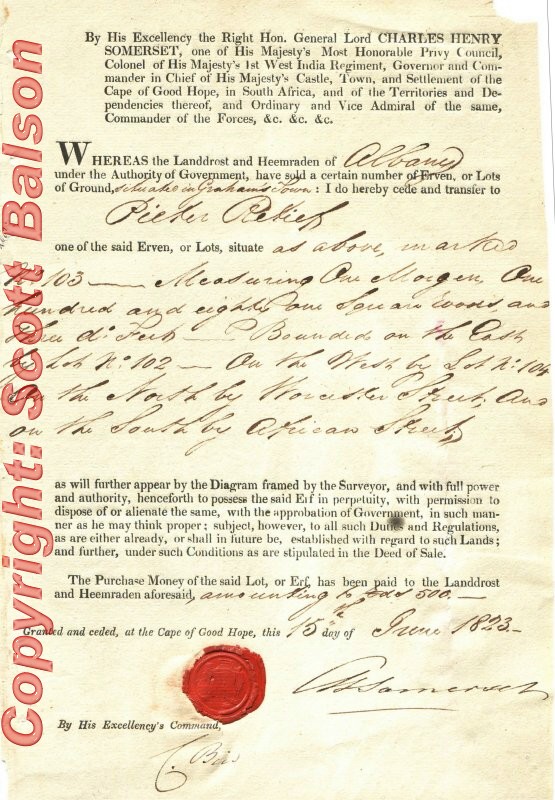 By His Excellency the Right Hon. General Lord CHARLES HENRY
SOMERSET, one of His Majesty's Most Honorable Privy Council,
Colonel of His Majesty's 1st West India Regiment, Governor and Com-
mander in Chief of His Majesty's Castle, Town, and Settlement of the
Cape of Good Hope, in South Africa, and of the Territories and De-
pendencies thereof, and Ordinary and Vice Admiral of the same,
Commander of the Forces, &c. &c. &c.
WHEREAS the Landdrost and Heemraden of Albany
under the Authority of Government, have sold a certain number of Erven, or Lots
of Ground, situated in Grahams Town : I do hereby cede and transfer to
Pieter Retief
one of the said Erven, or Lots, situate as above, marked
No 103 — Measuring One Morgen, One
Hundred and eighty one Square roods, and
do Feet — Bounded on the East
by Lot No. 102 — On the West by Lot No. 104
On the North by Worcester Street, And
on the South by African Street,
as will further appear by the Diagram framed by the Surveyor, and with full power
and authority, henceforth to possess the said Erf in perpetuity, with permission to
dispose of or alienate the same, with the approbation of Government, in such man-
ner as he may think proper; subject, however, to all such Duties and Regulations,
as are either already, or shall in future be, established with regard to such Lands;
and further, under such Conditions as are stipulated in the Deed of Sale.
The Purchase Money of the said Lot, or Erf, has been paid to the Landdrost
and Heemraden aforesaid, amounting to Rds 500.—
Granted and ceded, at the Cape of Good Hope, this 15th day of June 1823.—
CH Somerset
By His Excellency's Command,
C. Bird
Copyright: Scott Balson